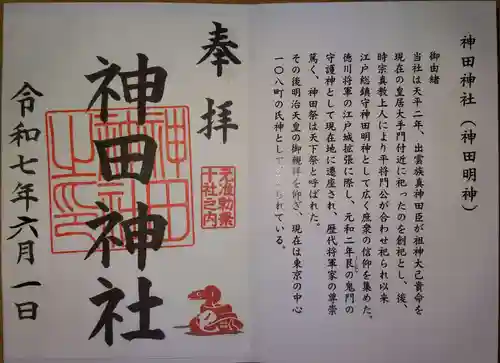 神田神社（神田明神）
御由緒
当社は天平二年、出雲族真神田臣が祖神大己貴命を
現在の皇居大手門付近に祀ったのを創祀とし、後、
時宗真教上人により平将門公が合わせ祀られ以来
江戸総鎮守神田明神として広く庶衆の信仰を集めた。
徳川将軍の江戸城拡張に際し、元和二年艮の鬼門の
守護神として現在地に遷座され、歴代将軍家の尊崇
篤く、神田祭は天下祭と呼ばれた。
その後明治天皇の御親拝を仰ぎ、現在は東京の中心
一〇八町の氏神として
られている。
奉拝
元准勅祭
十社之内
神田神社
神田
神社
之印
令和七年六月一日